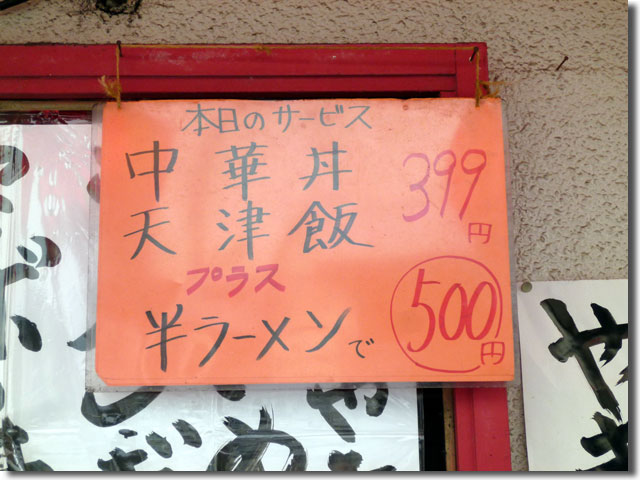 本日のサービス
中華丼
天津飯
399円
プラス
半ラーメンで
500円